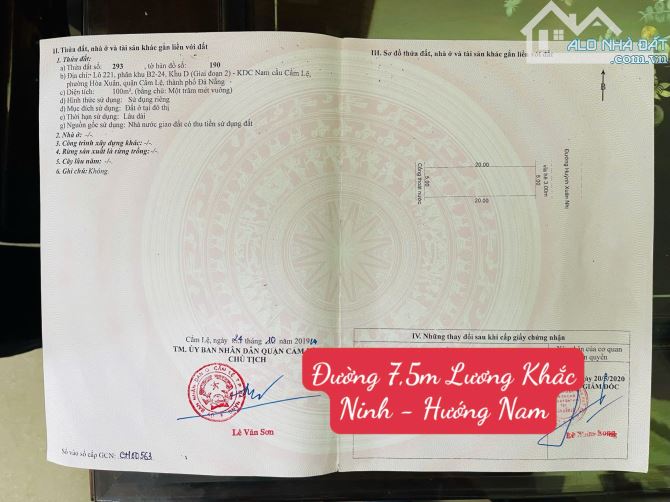 ALO NHÀ ĐẤT
II. Thửa đất, nhà ở và tài sản khác gắn liền với đất
1. Thửa đất:
a) Thửa đất số: 293 , tờ bản đồ số: 190
b) Địa chỉ: Lô 221, phân khu B2-24, Khu D (Giai đoạn 2) - KDC Nam cầu Cẩm Lệ,
phường Hòa Xuân, quận Cẩm Lệ, thành phố Đà Nẵng
c) Diện tích: 100m², (bằng chữ: Một trăm mét vuông)
d) Hình thức sử dụng: Sử dụng riêng
đ) Mục đích sử dụng: Đất ở tại đô thị
e) Thời hạn sử dụng: Lâu dài
g) Nguồn gốc sử dụng: Nhà nước giao đất có thu tiền sử dụng đất
2. Nhà ở: -/-
3. Công trình xây dựng khác: -/-
4. Rừng sản xuất là rừng trồng: -/-
5. Cây lâu năm: -/-
6. Ghi chú: Không.
Cẩm Lệ, ngày 24 tháng 10 năm 2019
TM. ỦY BAN NHÂN DÂN QUẬN CẨM
CHỦ TỊCH
Lê Văn Sơn
Số vào sổ cấp GCN: CH10563
III. Sơ đồ thửa đất, nhà ở và tài sản khác gắn liền với đất
B
20.00
Cống thoát nước
5.00
5.00
vỉa hè 3.00m
Đường Huỳnh Xuân Nhị
20.00
IV. Những thay đổi sau khi cấp giấy chứng nhận
của cơ quan
quyền
20/5/2020
GIÁM ĐỐC
Đường 7,5m Lương Khắc
Ninh - Hướng Nam